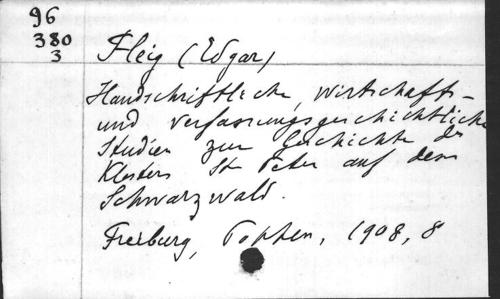 96
380
3
Fleig (Edgar)
Handschriftliche, wirtschafts-
und verfassungsgeschichtliche
Studien zur Geschichte des
Klosters St Peter auf dem
Schwarzwald.
Freiburg, Poppen, 1908, 8